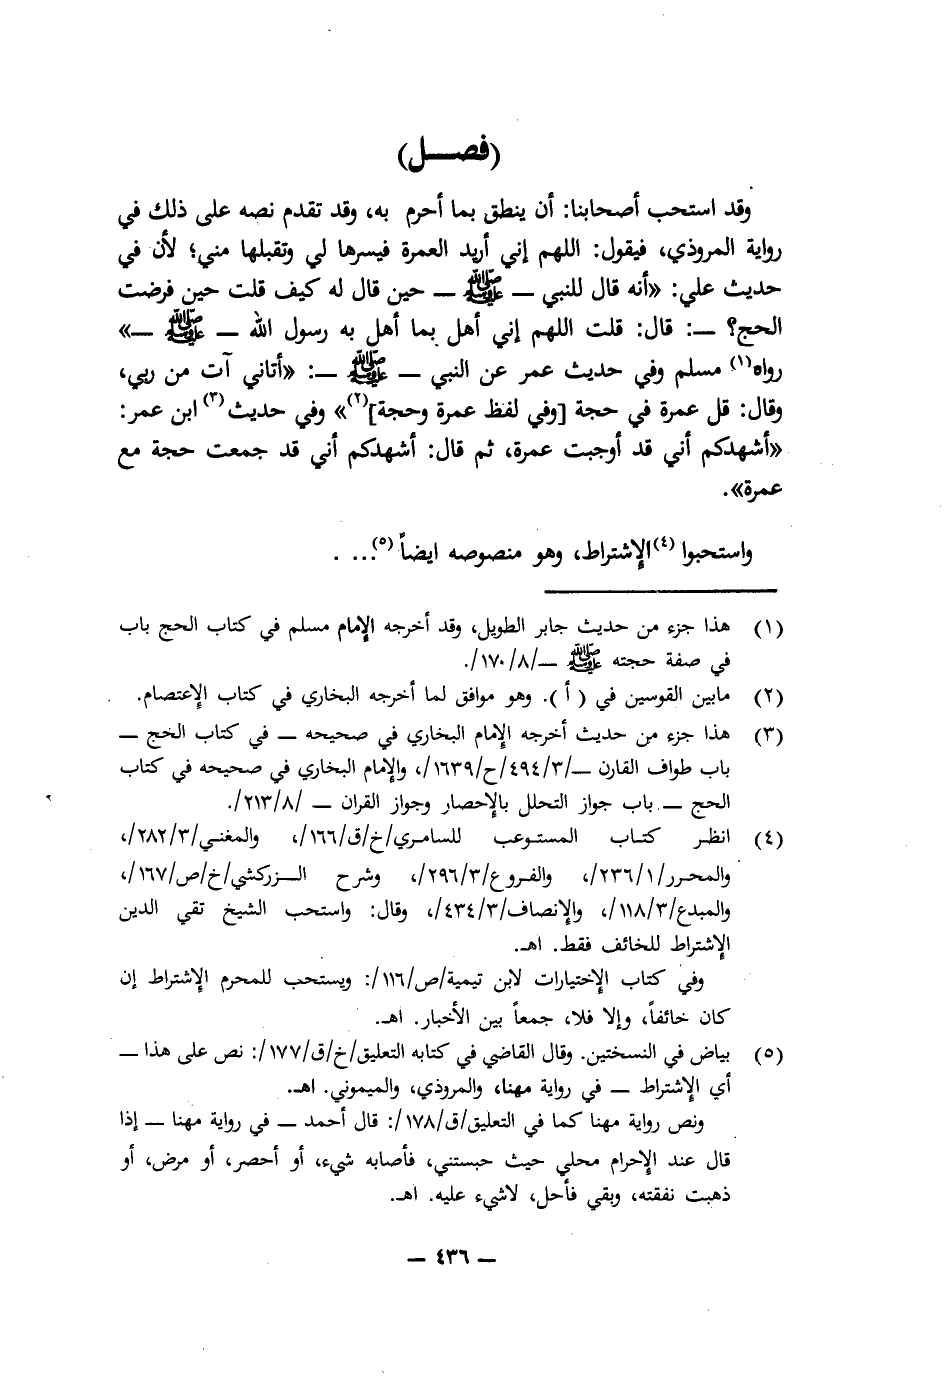 (فصــل)
وقد استحب أصحابنا: أن ينطق بما أحرم به، وقد تقدم نصه على ذلك في
رواية المروذي، فيقول: اللهم إني أريد العمرة فيسرها لي وتقبلها مني؛ لأن في
حديث علي: «أنه قال للنبي — ﷺ — حين قال له كيف قلت حين فرضت
الحج؟ —: قال: قلت اللهم إني أهل بما أهل به رسول الله — ﷺ —»
رواه(١) مسلم وفي حديث عمر عن النبي — ﷺ —: «أتاني آت من ربي،
وقال: قل عمرة في حجة [وفي لفظ عمرة وحجة](٢)» وفي حديث(٣) ابن عمر:
«أشهدكم أني قد أوجبت عمرة، ثم قال: أشهدكم أني قد جمعت حجة مع
عمرة».
واستحبوا (٤)الإشتراط، وهو منصوصه ايضاً (٥)... .
(١) هذا جزء من حديث جابر الطويل، وقد أخرجه الإمام مسلم في كتاب الحج باب
في صفة حجته ﷺ —/٨/ ١٧٠/.
(٢) مابين القوسين في ( أ ). وهو موافق لما أخرجه البخاري في كتاب الإعتصام.
(٣) هذا جزء من حديث أخرجه الإمام البخاري في صحيحه — في كتاب الحج —
باب طواف القارن —/٤٩٤/٣/ح/١٦٣٩/، والإمام البخاري في صحيحه في كتاب
الحج — باب جواز التحلل بالإحصار وجواز القران — /٢١٣/٨/.
(٤) انظر كتاب المستوعب للسامري/خ/ق/١٦٦/، والمغني/٢٨٢/٣/،
والمحرر/٢٣٦/١/، والفروع/٢٩٦/٣/، وشرح الـزركشي/خ/ص/١٦٧/،
والمبدع/١١٨/٣/، والإنصاف/٤٣٤/٣/، وقال: واستحب الشيخ تقي الدين
الإشتراط للخائف فقط. اهـ.
وفي كتاب الإختيارات لابن تيمية/ص/١١٦/: ويستحب للمحرم الإشتراط إن
كان خائفاً، وإلا فلا، جمعاً بين الأخبار. اهـ.
(٥) بياض في النسختين. وقال القاضي في كتابه التعليق/خ/ق/١٧٧/: نص على هذا —
أي الإشتراط — في رواية مهنا، والمروذي، والميموني. اهـ.
ونص رواية مهنا كما في التعليق/ق/١٧٨/: قال أحمد — في رواية مهنا — إذا
قال عند الإحرام محلي حيث حبستني، فأصابه شيء، أو أحصر، أو مرض، أو
ذهبت نفقته، وبقي فأحل، لاشيء عليه. اهـ.
— ٤٣٦ —